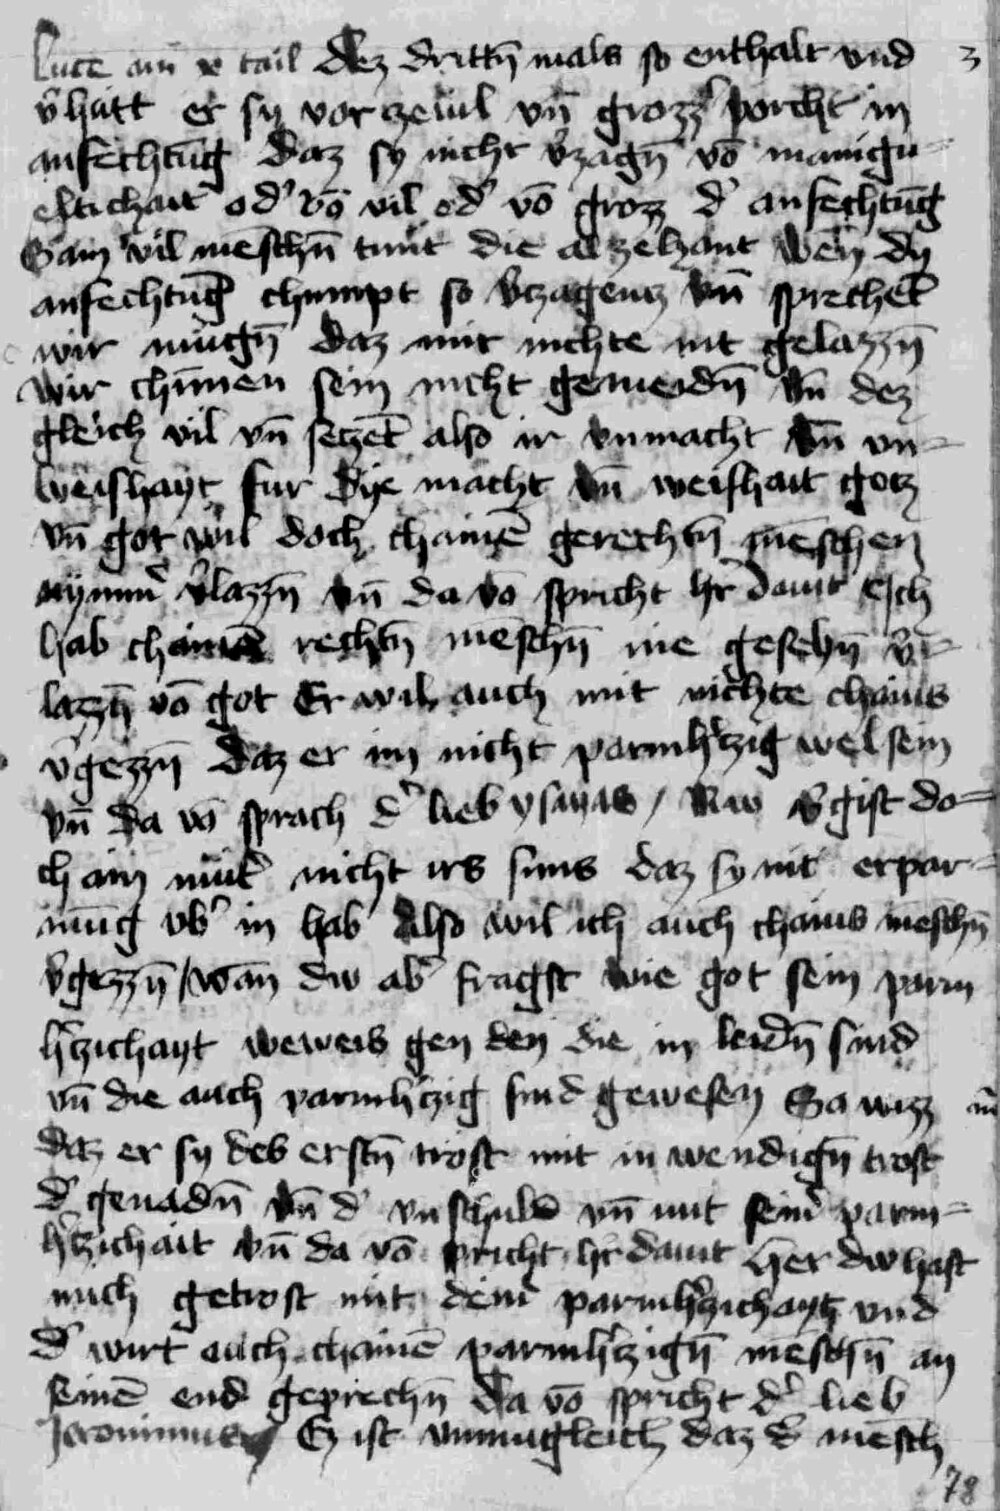 Luce am x tail Dez drittn̄ mals so enthalt vnd 3
v̾hütt er sy vor zeuil vn̄ grozz̾ vorcht in
anfechtu̅g daz sy nicht v̾zagn̄ vo̅ manigu-
eltichait od̾ vo̅ vil od̾ vo̅ grozz d̾ anfechtu̅g
Sam vil me̅schn̄ tunt die alzehant wen̄ dy
anfechtu̅g chumpt so v̾zagentz vn̄ sprechet̄
wir mugn̄ daz mit nichte nit gelazzn̄
wir chu̅nen sein nicht gemeidn̄ vn̄ dez
gleich vil vn̄ setzet̄ also ir vnmacht vn̄ vn-
weishayt fur dye macht vn̄ weishait gotz
vn̄ got wil doch chaine̅ gerechtn̄ me̅schen
nymm̾ v̾lazzn̄ vn̄ da vo̅ spricht h̾r dauit Ich
hab chaine̅ rechtn̄ me̅schn̄ nie gesehn̄ v̾-
lazzn̄ vo̅ got Er wil auch mit nichte chains
v̾gezzn̄ daz er im nicht parmh̾tzig wel sein
vn̄ da vo̅ sprach d̾ lieb ysayas / Nw v̾gist do-
ch ain mut̾ nicht irs suns daz sy nit erpar-
mu̅g vb̾ in hab Also wil ich auch chains me̅schn̄
v̾gezzn̄ / wan̄ dw ab̾ fragst wie got sein parm
h̾tzichayt beweis gen den die in leidn̄ sind
vn̄ die auch parmh̾tzig sind gewesen So wizz
daz er sy des erstn̄ trost mit inwendign̄ trost
d̾ genadn̄ vn̄ d̾ vnschuld vn̄ mit sein̾ parm-
h̾tzichait vn̄ da vo̅ spricht h̾r dauit h̾er dw hast
mich getrost mit dein̾ parmh̾tzichayt vnd
d̾ wirt auch chaine̅ parmh̾tzign̄ me̅schn̄ an
seine̅ end geprechn̄ Da vo̅ spricht d̾ lieb
Jeronimus Ez ist vnmugleich daz d̾ me̅sch
78